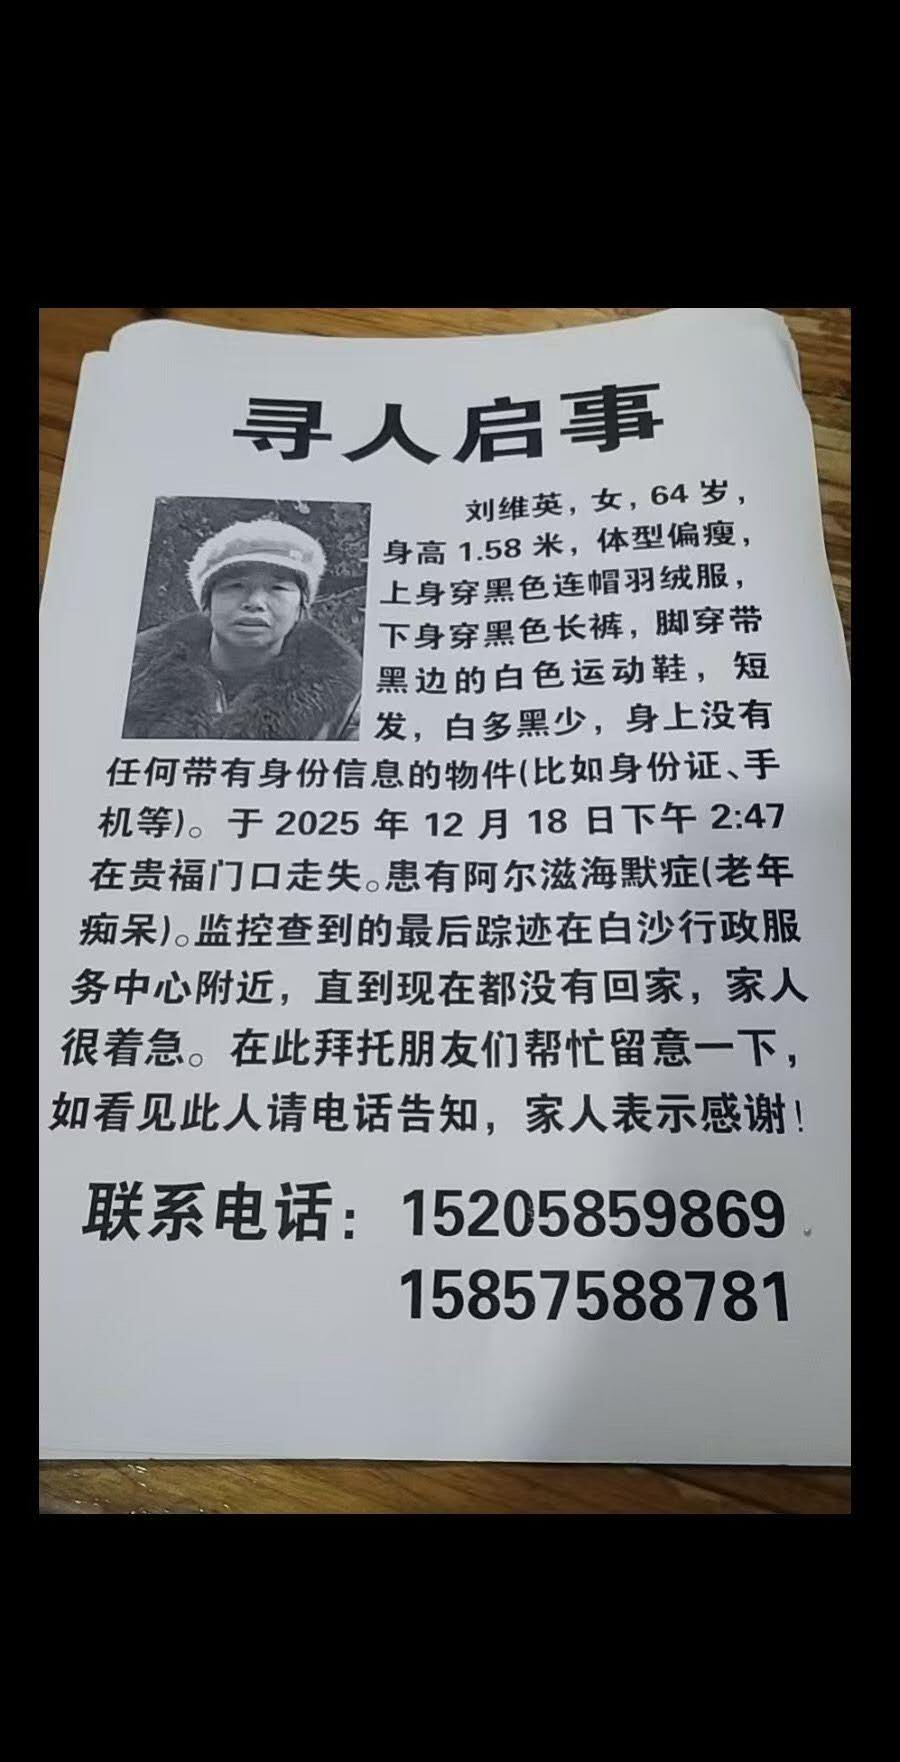 寻人启事
刘维英，女，64岁，
身高1.58米，体型偏瘦，
上身穿黑色连帽羽绒服，
下身穿黑色长裤，脚穿带
黑边的白色运动鞋，短
发，白多黑少，身上没有
任何带有身份信息的物件(比如身份证、手
机等)。于2025年12月18日下午2:47
在贵福门口走失。患有阿尔滋海默症(老年
痴呆)。监控查到的最后踪迹在白沙行政服
务中心附近，直到现在都没有回家，家人
很着急。在此拜托朋友们帮忙留意一下，
如看见此人请电话告知，家人表示感谢！
联系电话：15205859869
15857588781